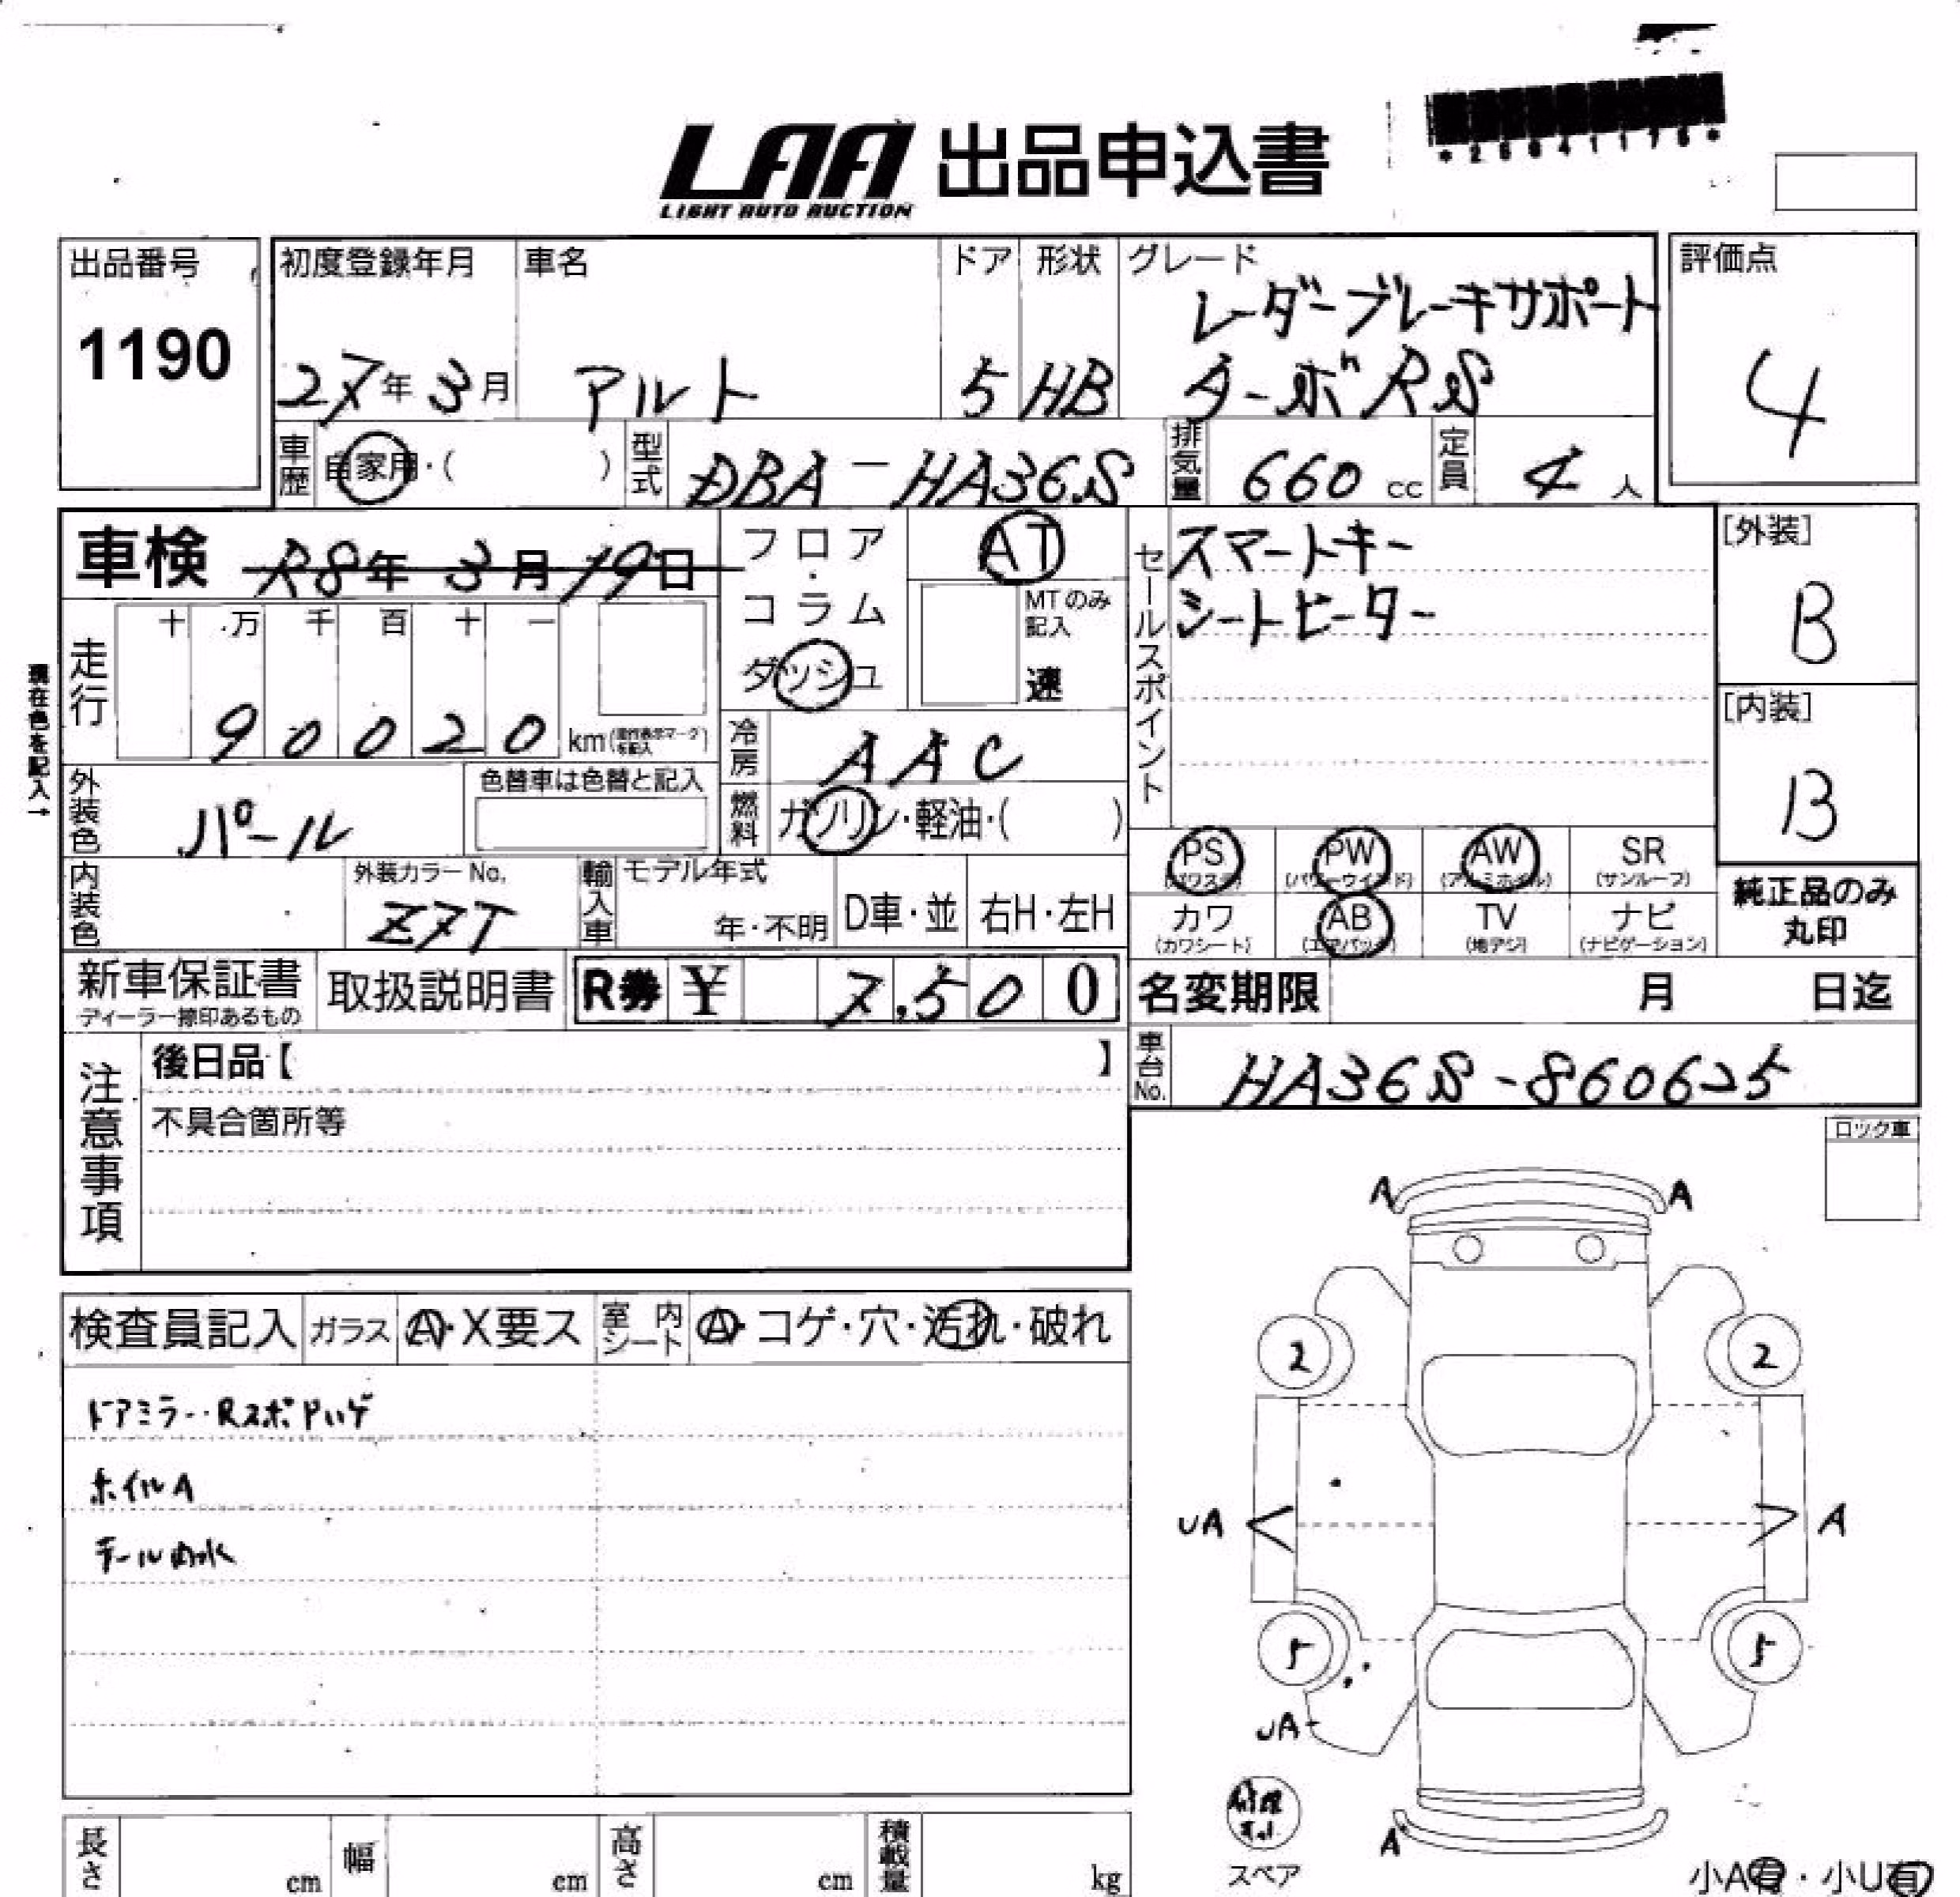 LAA 出品申込書
LIGHT AUTO AUCTION
出品番号
1190
初度登録年月
27年 3月
車名
アルト
ドア
5
形状
HB
グレード
レーダーブレーキサポート
ターボRS
評価点
4
車歴
自家用・( )
型式
DBA-HA36S
排気量
660 cc
定員
4 人
車検 R8年 3月 19日
フロア・コラム
ダッシュ
AT
MTのみ記入
速
セールスポイント
スマートキー
シートヒーター
[外装]
B
[内装]
B
現在色を記入→
走行
十 万 千 百 十 一
90020 km
冷房
AAC
外装色
パール
色替車は色替と記入
燃料
ガソリン・軽油・( )
PS
(パワステ)
PW
(パワーウインド)
AW
(アルミホイル)
SR
(サンルーフ)
カワ
(カワシート)
AB
(エアバック)
TV
(地デジ)
ナビ
(ナビゲーション)
純正品のみ
丸印
内装色
外装カラーNo.
Z7T
輸入車
モデル年式
年・不明
D車・並
右H・左H
新車保証書
ディーラー捺印あるもの
取扱説明書
R券 ¥ 7,500
名変期限 月 日迄
車台No.
HA36S-860625
注意事項
後日品【 】
不具合箇所等
ロック車
検査員記入
ガラス
A・X要ス
室内シート
A・コゲ・穴・汚れ・破れ
ドアミラー・RスポPハゲ
ホイルA
テール内水
A A
2 2
UA A
5 5
UA
A
修理キット
スペア
小A有・小U有
長さ cm
幅 cm
高さ cm
積載量 kg